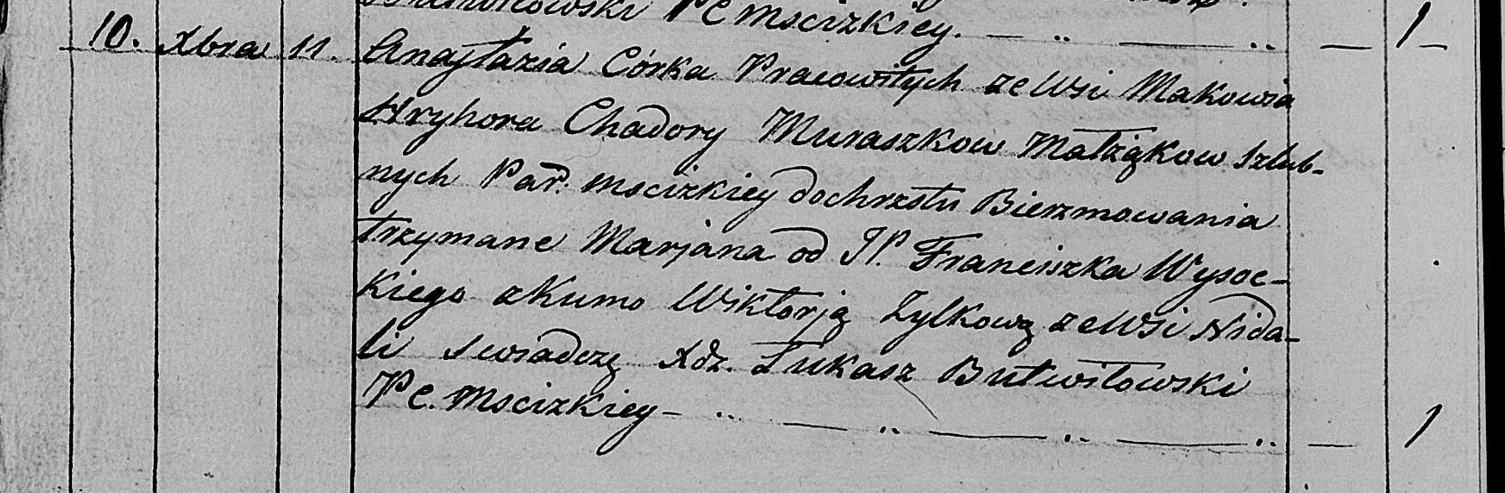 PC Mscizkiey. — " — " — 1 —
10. Xbra 11. Anastazia Córka Pracowitych ze Wsi Makowia
Hryhora Chadory Muraszkow Małżąkow szlub-
nych Par. Mscizkiey do chrzstu Bierzmowania
trzymane Marjana od JP. Franciszka Wysoc-
kiego z Kumo Wiktorją Zylkową ze Wsi Nida-
li swiadczę Xdz. Łukasz Butwiłowski
PC. Mscizkiey — " — " — " — " — 1